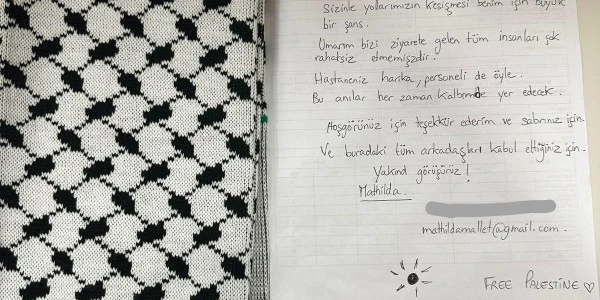 Sizinle yollarımızın kesişmesi benim için büyük
bir şans.
Umarım bizi ziyarete gelen tüm insanları çok
rahatsız etmemişzdir.
Hastaneniz harika, personeli de öyle.
Bu anılar her zaman kalbimde yer edecek.
Hoşgörünüz için teşekkür ederim ve sabrınız için.
Ve buradaki tüm arkadaşları kabul ettiğiniz için.
Yakınd görüşürüz!
Mathilda
mathildamallet@gmail.com.
FREE PALESTINE